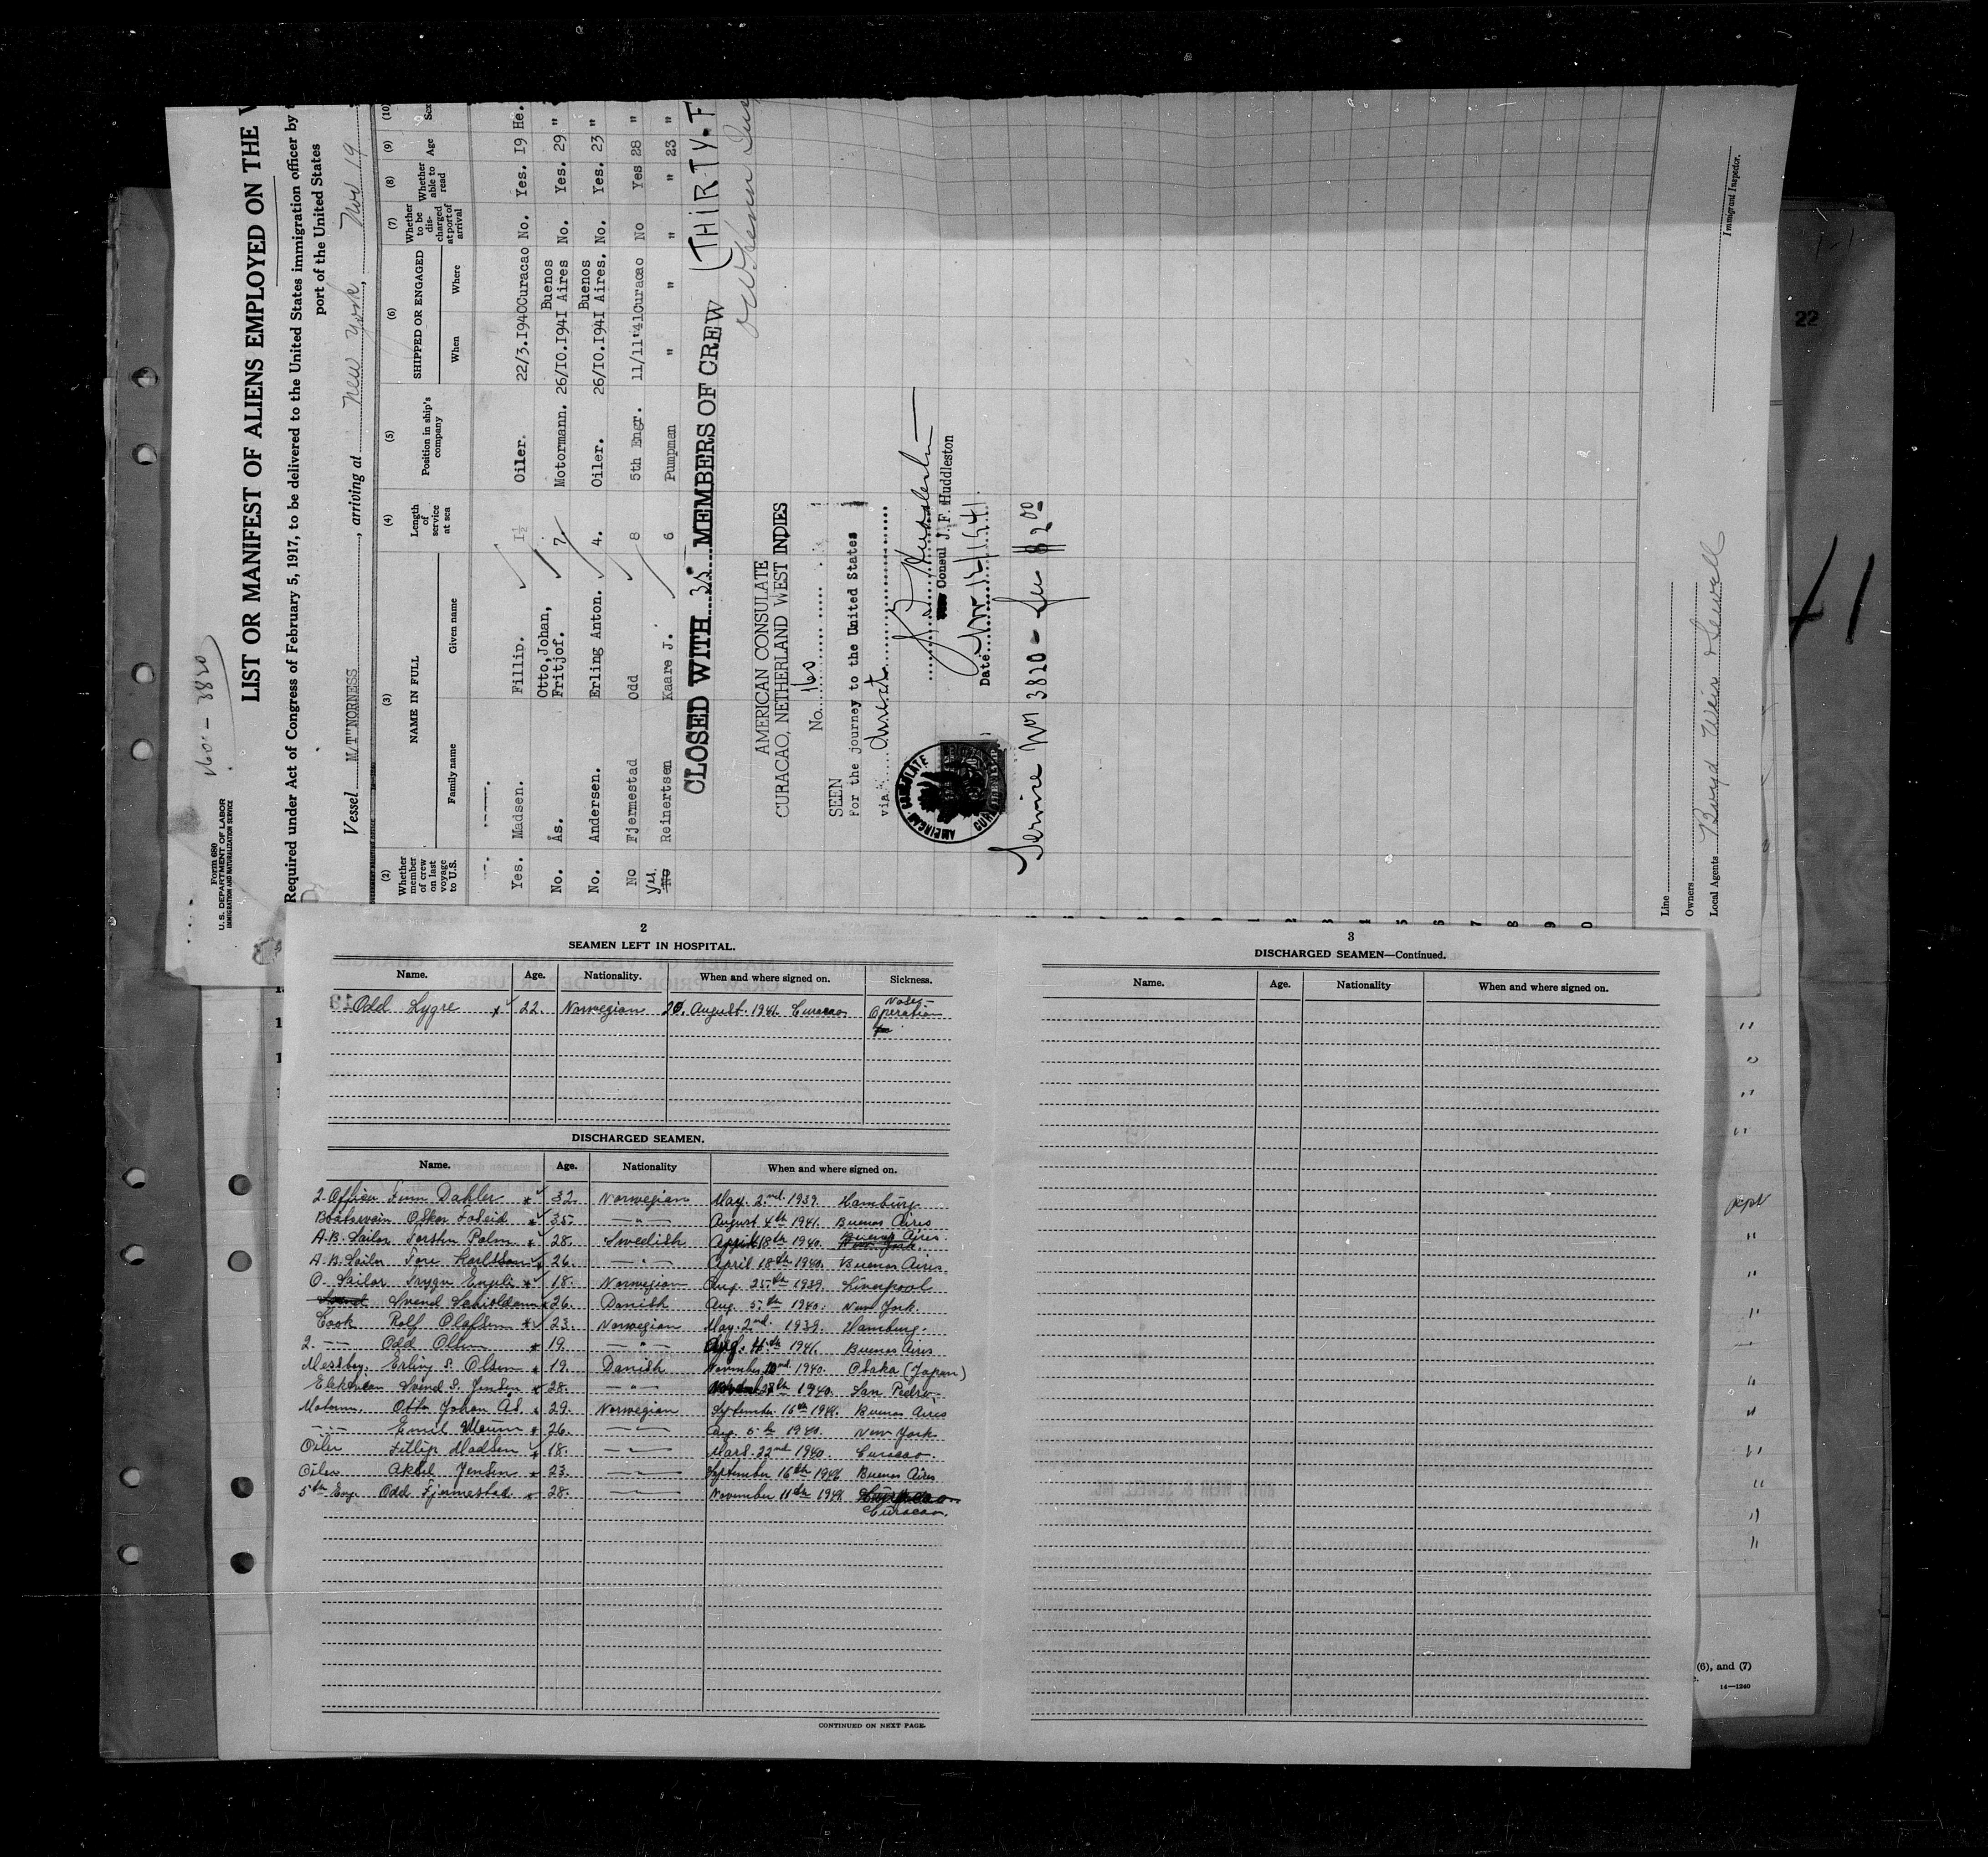 160 - 3820
Form 680
U.S. DEPARTMENT OF LABOR
IMMIGRATION AND NATURALIZATION SERVICE
LIST OR MANIFEST OF ALIENS EMPLOYED ON THE V
Required under Act of Congress of February 5, 1917, to be delivered to the United States immigration officer by
port of the United States
Vessel M/T"NORNESS , arriving at New York , Nov 19
(2) (3) (4) (5) (6) (7) (8) (9) (10)
Whether member of crew on last voyage to U.S. NAME IN FULL Length of service at sea Position in ship's company SHIPPED OR ENGAGED Whether to be discharged at port of arrival Whether able to read Age Sex
Family name Given name When Where
Yes. Madsen. Fillip. 1½ Oiler. 22/3.1940 Curacao No. Yes. 19 He.
No. Ås. Otto, Johan, Fritjof. 7. Motormann. 26/10.1941 Buenos Aires No. Yes. 29 "
No. Andersen. Erling Anton. 4. Oiler. 26/10.1941 Buenos Aires. No. Yes. 23 "
No Fjermestad Odd 8 5th Engr. 11/11'41 Curacao No Yes 28 "
Yes. No Reinertsen Kaare J. 6 Pumpman " " " " 23 "
CLOSED WITH 35 MEMBERS OF CREW (THIRTY-F
AMERICAN CONSULATE
CURACAO, NETHERLAND WEST INDIES
No. 160
SEEN
For the journey to the United States
via direct
Consul J. F. Huddleston
Date Nov 12/1941.
AMERICAN CONSULATE
Service No 3820 - Fee $2.00
Line
Owners
Local Agents Boyd Weir Sewell
Immigrant Inspector.
22
41
2
SEAMEN LEFT IN HOSPITAL.
Name. Age. Nationality. When and where signed on. Sickness.
Odd Lygre 22. Norwegian 20. August. 1941. Curacao Nose-Operation
DISCHARGED SEAMEN.
Name. Age. Nationality When and where signed on.
2. Officer Finn Dahler 32. Norwegian May. 2nd. 1939. Hamburg.
Boatswain Oskar Foseid 35. -"- August 4th 1941. Buenos Aires
A.B. Sailor Torsten Palm 28. Swedish April 18th 1940. Buenos Aires.
A.B. Sailor Tore Karlsson 26. -"- April 18th 1940. Buenos Aires.
O. Sailor Trygve Engeli 18. Norwegian Aug. 25th 1939. Liverpool
Svend Schioldann 26. Danish Aug. 5th 1940. New York.
Cook Rolf Olafsen 23. Norwegian May. 2nd. 1939. Hamburg.
2. -"- Odd Olsen 19. -"- Aug. 4th 1941. Buenos Aires
Messboy. Erling S. Olsen 19. Danish November 1940. Osaka (Japan)
Elektrician Svend S. Jensen 28. -"- 1940. San Pedro
Motorm. Otto Johan Ås. 29. Norwegian September 16th 1941. Buenos Aires
-"- Emil 26. -"- Aug. 5th 1940. New York
Oiler Fillip Madsen 18. -"- Mars. 22nd 1940. Curacao.
Oiler Aksel Jensen 23. -"- September 16th 1941 Buenos Aires
5th Eng. Odd Fjermestad 28. -"- November 11th 1941
Curacao.
CONTINUED ON NEXT PAGE.
3
DISCHARGED SEAMEN—Continued.
Name. Age. Nationality When and where signed on.
(6), and (7)
14—1240